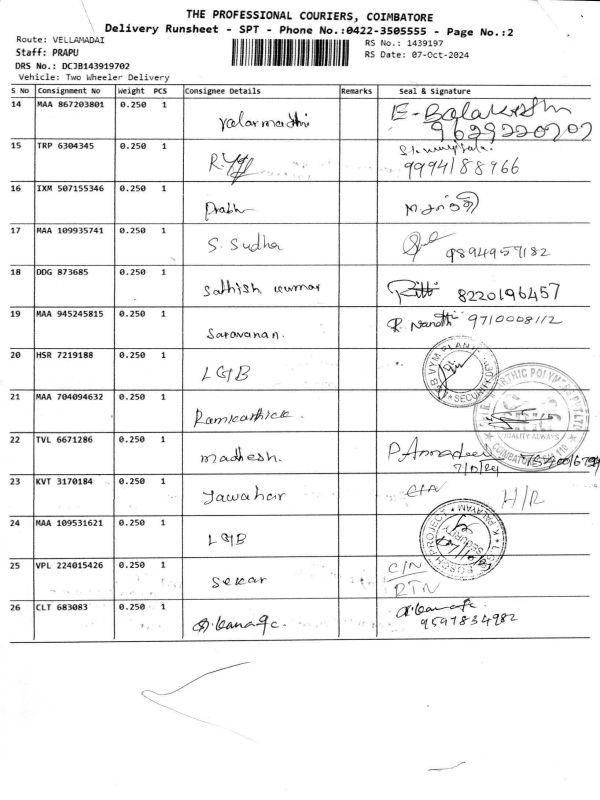 THE PROFESSIONAL COURIERS, COIMBATORE
Delivery Runsheet - SPT - Phone No.:0422-3505555 - Page No.:2
Route: VELLAMADAI
RS No.: 1439197
Staff: PRAPU
RS Date: 07-Oct-2024
DRS No.: DCJB143919702
Vehicle: Two Wheeler Delivery
S No Consignment No Weight PCS Consignee Details Remarks Seal & Signature
14 MAA 867203801 0.250 1 Valarmathi E-Balakrishn
9629220202
15 TRP 6304345 0.250 1
9994188966
16 IXM 507155346 0.250 1 Prabh
17 MAA 109935741 0.250 1 S. Sudha 9894959182
18 DDG 873685 0.250 1 Sathish kumar 8220196457
19 MAA 945245815 0.250 1 Saravanan. R. Nandhi 9710008112
20 HSR 7219188 0.250 1 LGB
21 MAA 704094632 0.250 1 Ramkarthick
QUALITY ALWAYS
22 TVL 6671286 0.250 1 madhesh.
7/10/24
23 KVT 3170184 0.250 1 Jawahar C/N H/R
24 MAA 109531621 0.250 1 LGB
25 VPL 224015426 0.250 1 Sekar C/N
RTN
26 CLT 683083 0.250 1
9597834982